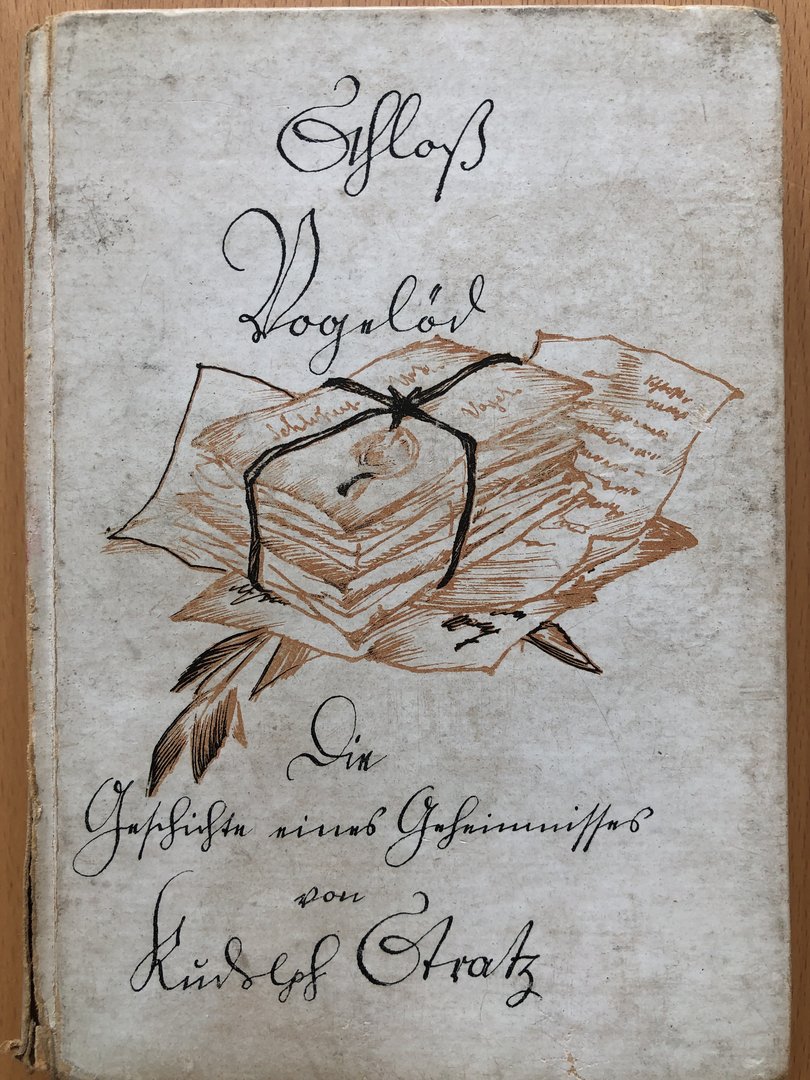 Schloß
Vogelöd
Die
Geschichte eines Geheimnisses
von
Rudolph Stratz